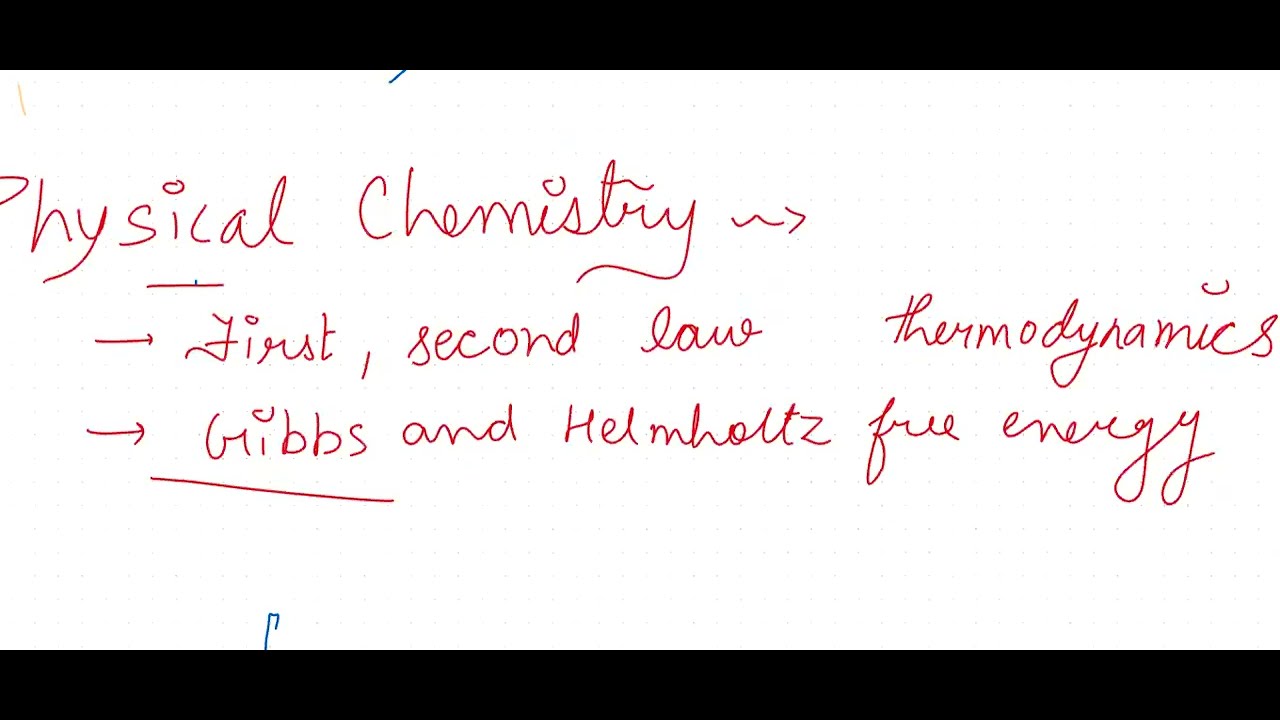 Physical Chemistry ~>
→ First, second law thermodynamics
→ Gibbs and Helmholtz free energy